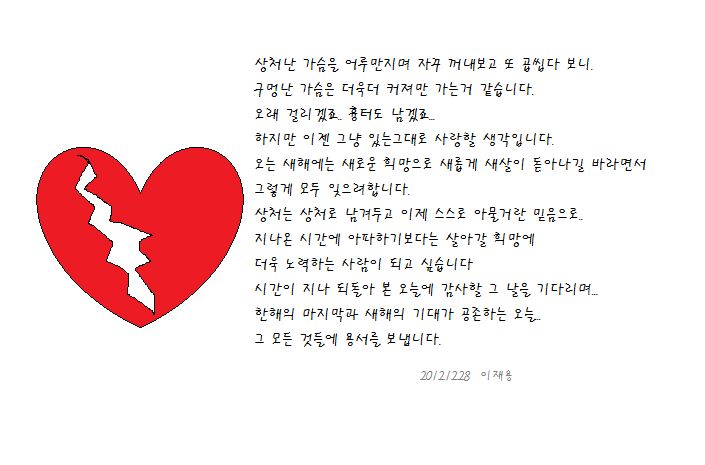 상처난 가슴을 어루만지며 자꾸 꺼내보고 또 곱씹다 보니.
구멍난 가슴은 더욱더 커져만 가는거 같습니다.
오래 걸리겠죠.. 흉터도 남겠죠...
하지만 이젠 그냥 있는그대로 사랑할 생각입니다.
오는 새해에는 새로운 희망으로 새롭게 새살이 돋아나길 바라면서
그렇게 모두 잊으려합니다.
상처는 상처로 남겨두고 이제 스스로 아물거란 믿음으로..
지나온 시간에 아파하기보다는 살아갈 희망에
더욱 노력하는 사람이 되고 싶습니다
시간이 지나 되돌아 본 오늘에 감사할 그 날을 기다리며...
한해의 마지막과 새해의 기대가 공존하는 오늘...
그 모든 것들에 용서를 보냅니다.
20121228 이재용